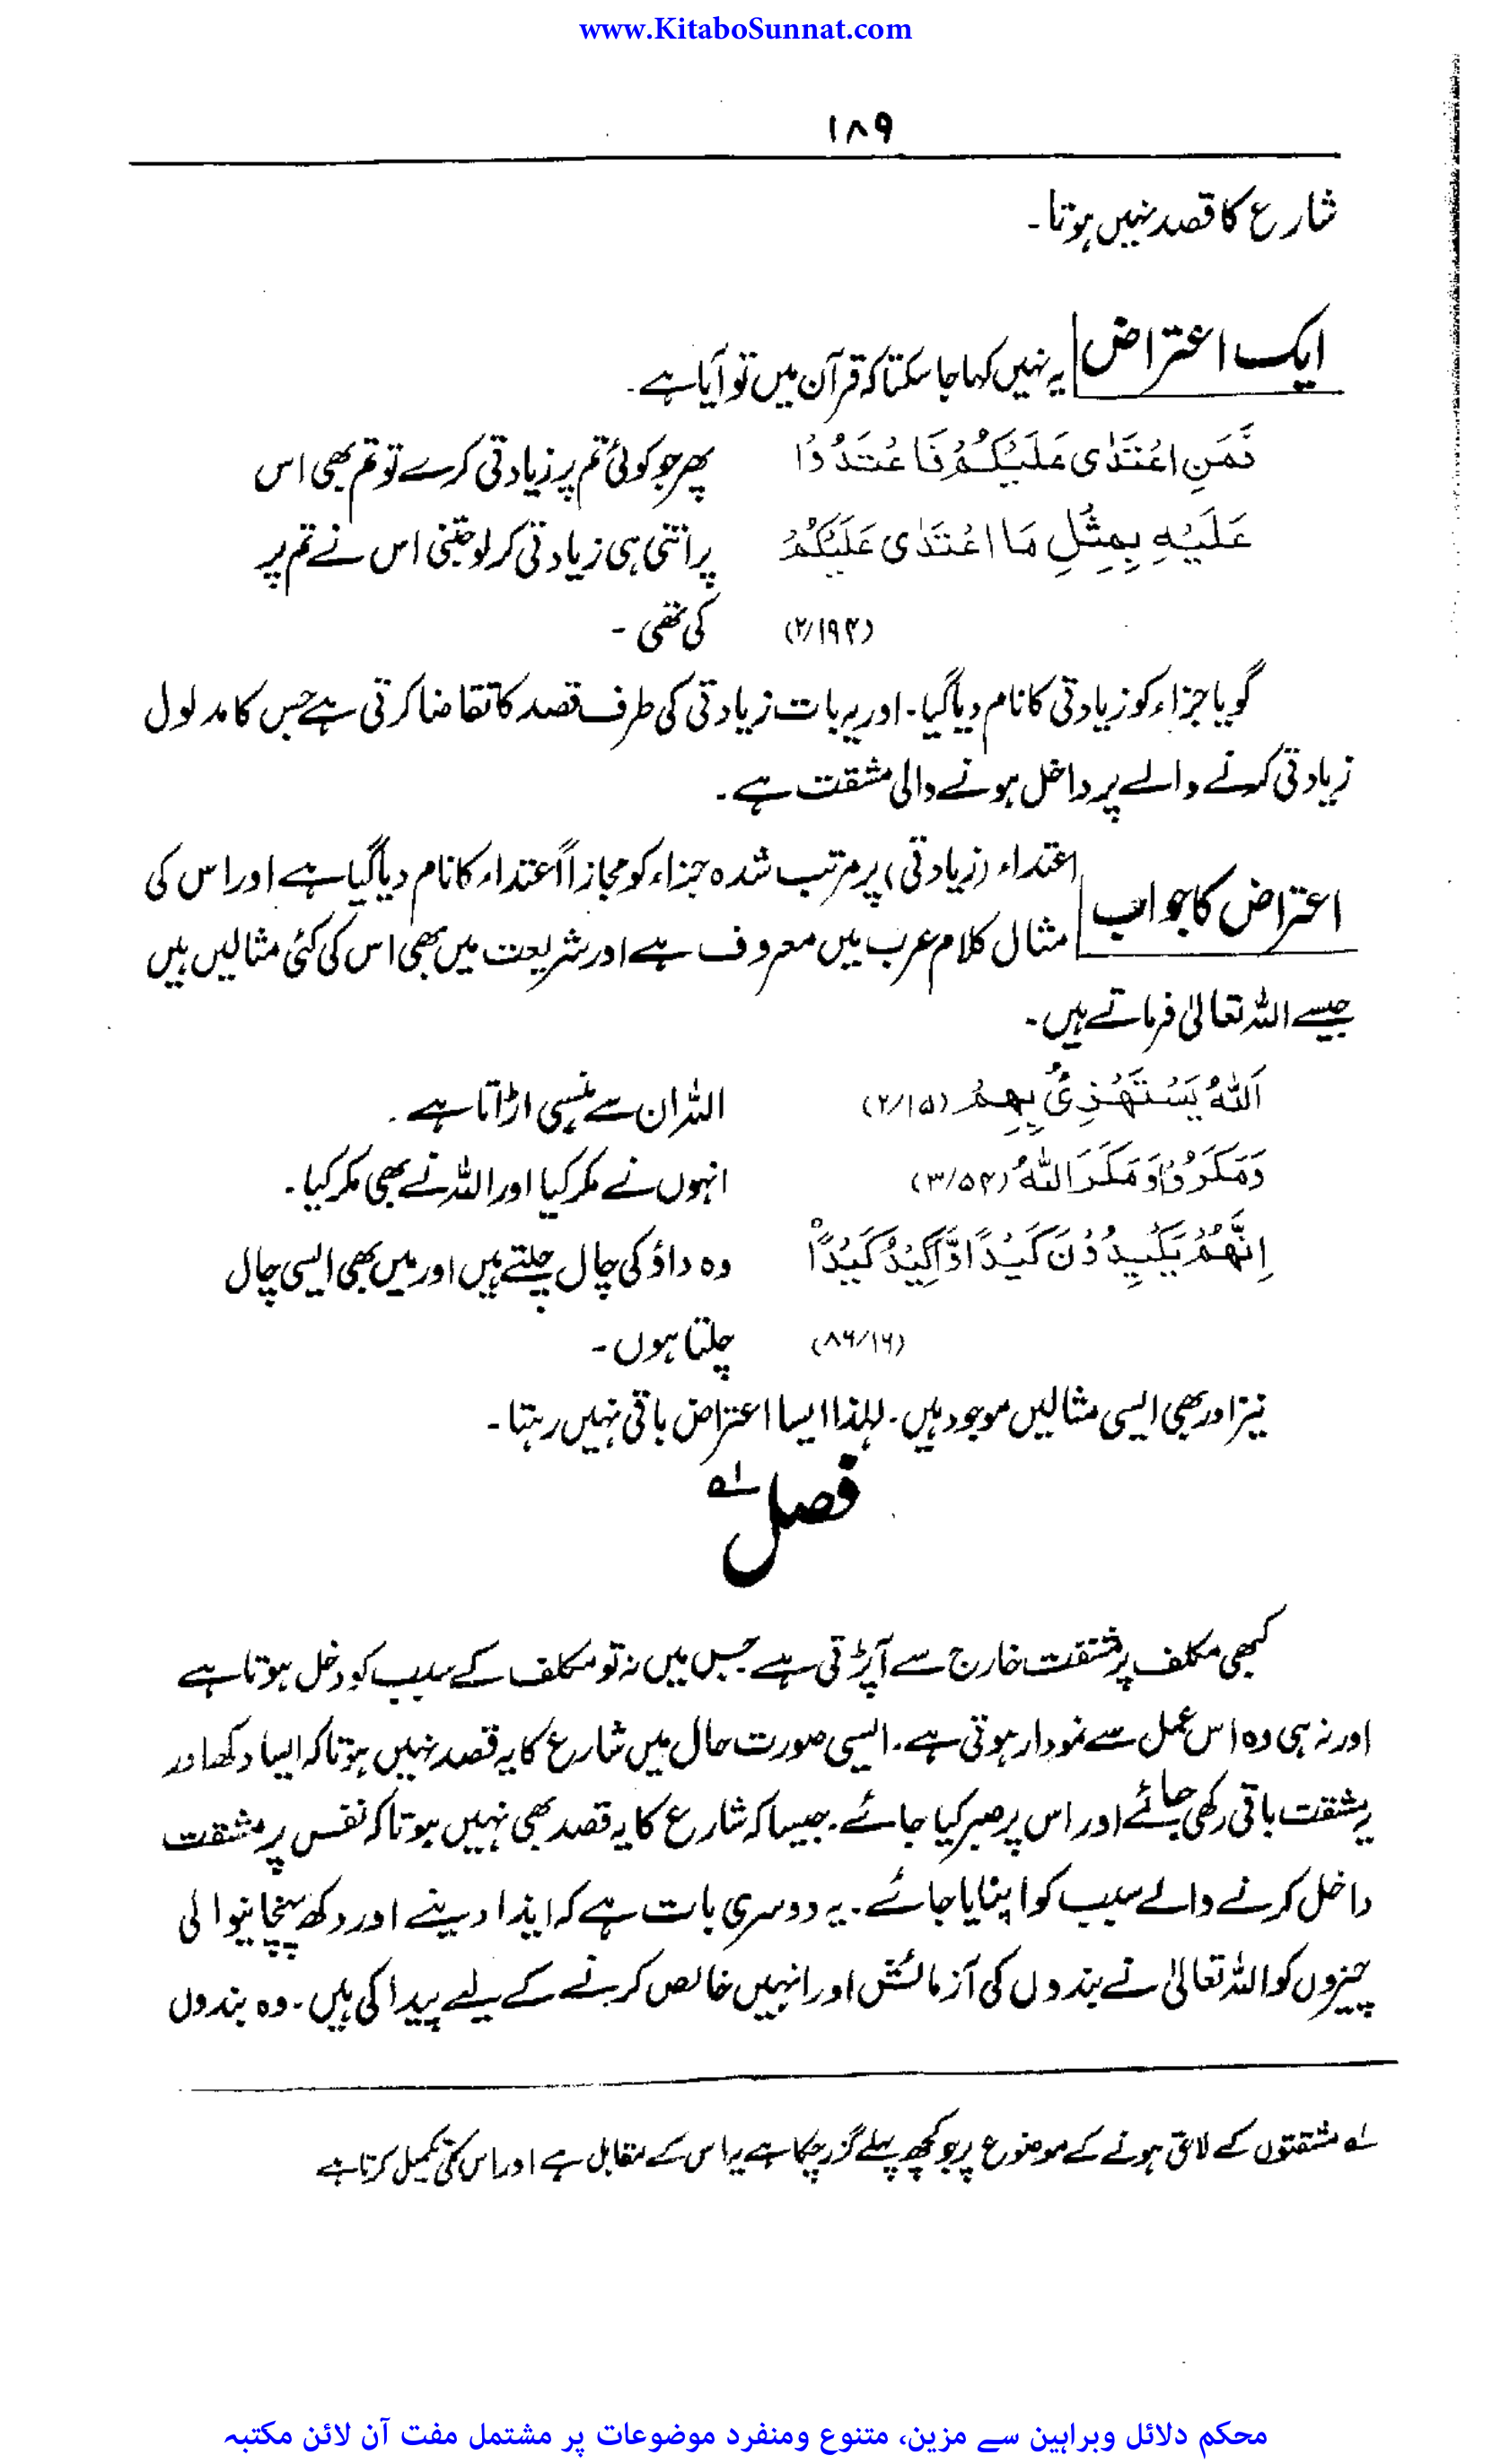 www.KitaboSunnat.com
۱۸۹
شارع کا قصد نہیں ہوتا۔
ایک اعتراض یہ نہیں کہا جا سکتا کہ قرآن میں تو آیا ہے۔
فَمَنِ اعْتَدٰی عَلَیْکُمْ فَاعْتَدُوْا پھر جو کوئی تم پر زیادتی کرے تو تم بھی اس
عَلَیْهِ بِمِثْلِ مَا اعْتَدٰی عَلَیْکُمْ پر اتنی ہی زیادتی کر لو جتنی اس نے تم پر
(۲/۱۹۴) کی تھی۔
گویا جزاء کو زیادتی کا نام دیا گیا۔ اور یہ بات زیادتی کی طرف قصد کا تقاضا کرتی ہے جس کا مدلول
زیادتی کرنے والے پر داخل ہونے والی مشقت ہے۔
اعتراض کا جواب اعتداء (زیادتی) پر مرتب شدہ جزاء کو مجازاً اعتداء کا نام دیا گیا ہے اور اس کی
مثال کلام عرب میں معروف ہے اور شریعت میں بھی اس کی کئی مثالیں ہیں
جیسے اللہ تعالیٰ فرماتے ہیں۔
اَللّٰهُ یَسْتَهْزِئُ بِهِمْ (۲/۱۵) اللہ ان سے ہنسی اڑاتا ہے۔
وَمَکَرُوْا وَمَکَرَ اللّٰهُ (۳/۵۴) انہوں نے مکر کیا اور اللہ نے بھی مکر کیا۔
اِنَّهُمْ یَکِیْدُوْنَ کَیْدًا وَّاَکِیْدُ کَیْدًا وہ داؤ کی چال چلتے ہیں اور میں بھی ایسی چال
(۸۶/۱۶) چلتا ہوں۔
نیز اور بھی ایسی مثالیں موجود ہیں۔ لہٰذا ایسا اعتراض باقی نہیں رہتا۔
فصل ؎۱
کبھی مکلف پر مشقت خارج سے آپڑتی ہے جس میں نہ تو مکلف کے سبب کو دخل ہوتا ہے
اور نہ ہی وہ اس عمل سے نمودار ہوتی ہے۔ ایسی صورت حال میں شارع کا یہ قصد نہیں ہوتا کہ ایسا دکھ اور
یہ مشقت باقی رکھی جائے اور اس پر صبر کیا جائے۔ جیسا کہ شارع کا یہ قصد بھی نہیں ہوتا کہ نفس پر مشقت
داخل کرنے والے سبب کو اپنایا جائے۔ یہ دوسری بات ہے کہ ایذا دینے اور دکھ پہنچانیوالی
چیزوں کو اللہ تعالیٰ نے بندوں کی آزمائش اور انہیں خالص کرنے کے لیے پیدا کی ہیں۔ وہ بندوں
؎۱ مشقتوں کے لاحق ہونے کے موضوع پر جو کچھ پہلے گزر چکا ہے یہ اس کے مقابل ہے اور اس کی تکمیل کرتا ہے
محکم دلائل وبراہین سے مزین، متنوع ومنفرد موضوعات پر مشتمل مفت آن لائن مکتبہ